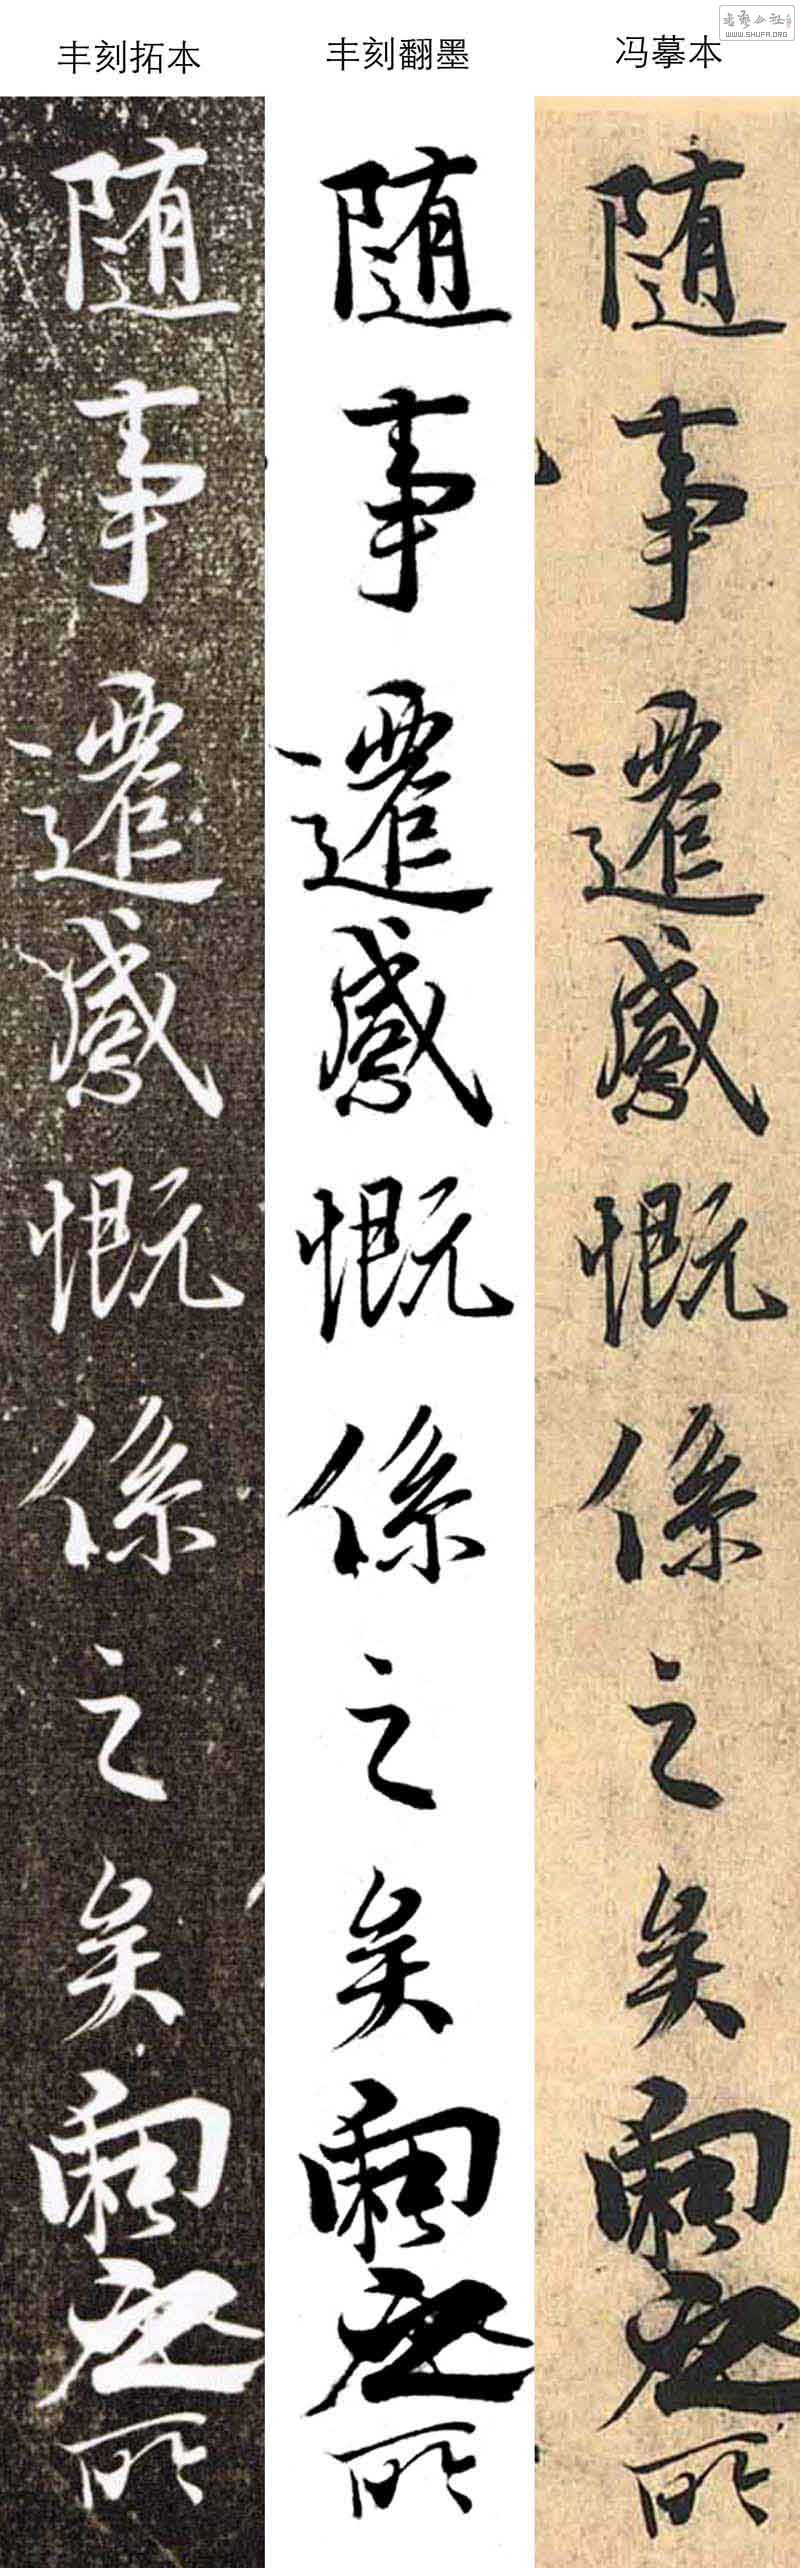 丰刻拓本
丰刻翻墨
冯摹本
书艺公社
WWW.SHUFA.ORG
随事遷感慨係之矣向之所
随事遷感慨係之矣向之所
随事遷感慨係之矣向之所